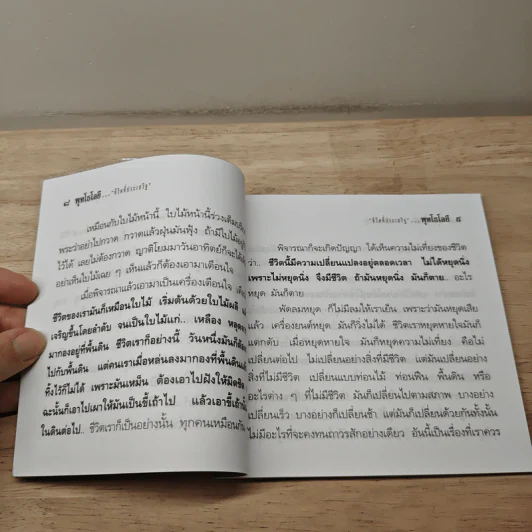 ๘ พุทโธโลยี...."ชีวิตที่ประเสริฐ"
เหมือนกับใบไม้หน้านี้ ใบไม้หน้านี้ร่วงเต็มบริ
พระว่าอย่าไปกวาด กวาดแล้วฝุ่นมันฟุ้ง ถ้ามีใบไม้อยู่
ไว้ได้ เลยไม่ต้องกวาด ญาติโยมมาวันอาทิตย์ก็จะได้เ
อย่าเห็นใบไม้เฉย ๆ เห็นแล้วก็ต้องเอามาเตือนใจ
เมื่อพิจารณาแล้วเอามาเป็นเครื่องเตือนใจ
ชีวิตของเรามันก็เหมือนใบไม้ เริ่มต้นด้วยใบไม้ผลิ
เจริญขึ้นโดยลำดับ จนเป็นใบไม้แก่.. เหลือง หลุด
มากองอยู่ที่พื้นดิน ชีวิตเราก็อย่างนี้ วันหนึ่งมันก็ต้อ
ไปกับพื้นดิน แต่คนเราเมื่อหล่นลงมากองที่พื้นดิน
ทิ้งไว้ก็ไม่ได้ เพราะมันเหม็น ต้องเอาไปฝังให้มิดชิด
ฉะนั้นก็เอาไปเผาให้มันเป็นขี้เถ้าไป แล้วเอาขี้เถ้านั้
ในดินต่อไป.. ชีวิตเราก็เป็นอย่างนั้น ทุกคนเหมือนกัน
"ชีวิตที่ประเสริฐ"....พุทโธโลยี ๙
พิจารณาก็จะเกิดปัญญา ได้เห็นความไม่เที่ยงของชีวิต
ว่า.. ชีวิตนี้มีความเปลี่ยนแปลงอยู่ตลอดเวลา ไม่ได้หยุดนิ่ง
เพราะไม่หยุดนิ่ง จึงมีชีวิต ถ้ามันหยุดนิ่ง มันก็ตาย.. อะไร
หยุด มันก็ตาย
พัดลมหยุด ก็ไม่มีลมให้เราเย็น เพราะว่ามันหยุดเสีย
แล้ว เครื่องยนต์หยุด มันก็วิ่งไม่ได้ ชีวิตเราหยุดหายใจมันก็
แตกดับ เมื่อหยุดหายใจ มันก็หยุดความไม่เที่ยง คือไม่
เปลี่ยนต่อไป ไม่เปลี่ยนอย่างสิ่งที่มีชีวิต แต่มันเปลี่ยนอย่าง
สิ่งที่ไม่มีชีวิต เปลี่ยนแบบท่อนไม้ ท่อนฟืน พื้นดิน หรือ
อะไรต่าง ๆ ที่ไม่มีชีวิต มันก็เปลี่ยนไปตามสภาพ บางอย่าง
เปลี่ยนเร็ว บางอย่างก็เปลี่ยนช้า แต่มันก็เปลี่ยนด้วยกันทั้งนั้น
ไม่มีอะไรที่จะคงทนถาวรสักอย่างเดียว อันนี้เป็นเรื่องที่เราควร